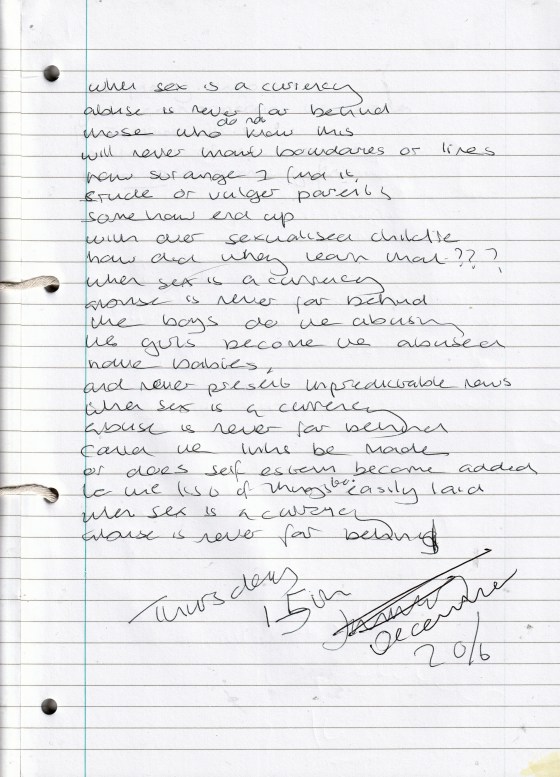 when sex is a currency
abuse is never far behind
those who do not know this
will never mark boundaries or lines
how strange I find it,
crude or vulger parents
some how end up
with over sexualised childre
how did they learn that???
when sex is a currency
abuse is never far behind
the boys do the abusing
the girls become the abused
have babies,
and never present unpredictable news
when sex is a currency
abuse is never far behind
could the links be made
or does self esteem become added
to the list of things be easily laid
when sex is a currency
abuse is never far behind
Thursday
15th
December
2016